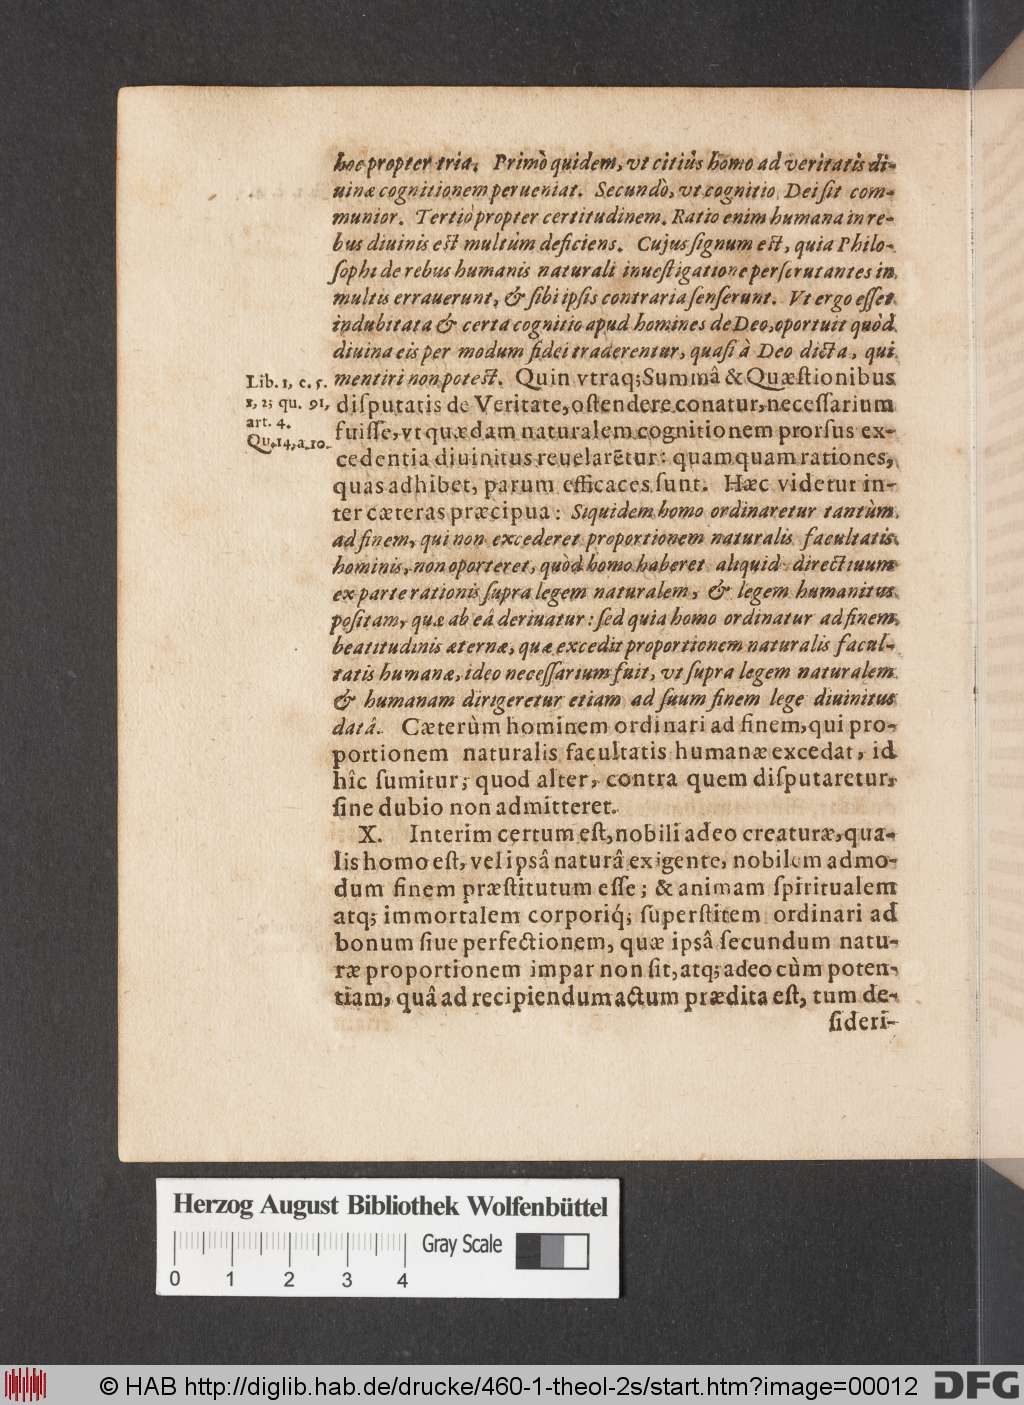 hoc propter tria. Primò quidem, vt citiùs homo ad veritatis di-
uinæ cognitionem perueniat. Secundò, vt cognitio Dei ſit com-
munior. Tertiò propter certitudinem. Ratio enim humana in re-
bus diuinis est multùm deficiens. Cujus ſignum est, quia Philo-
ſophi de rebus humanis naturali inueſtigatione perſcrutantes in
multis errauerunt, & ſibi ipſis contraria ſenſerunt. Vt ergo eſſet
indubitata & certa cognitio apud homines de Deo, oportuit quòd
diuina eis per modum fidei traderentur, quaſi à Deo dicta, qui
mentiri non potest. Quin vtraq; Summâ & Quæſtionibus
Lib. 1, c. 5.
1, 2; qu. 91,
art. 4.
Qu. 14, a. 10.
diſputatis de Veritate, oſtendere conatur, neceſſarium
fuiſſe, vt quædam naturalem cognitionem prorſus ex-
cedentia diuinitus reuelarētur: quamquam rationes,
quas adhibet, parum efficaces ſunt. Hæc videtur in-
ter cæteras præcipua: Siquidem homo ordinaretur tantùm
ad finem, qui non excederet proportionem naturalis facultatis
hominis, non oporteret, quòd homo haberet aliquid directiuum
ex parte rationis ſupra legem naturalem, & legem humanitus
poſitam, quæ ab eâ deriuatur: ſed quia homo ordinatur ad finem
beatitudinis æternæ, quæ excedit proportionem naturalis facul-
tatis humanæ, ideo neceſſarium fuit, vt ſupra legem naturalem
& humanam dirigeretur etiam ad ſuum finem lege diuinitus
datâ. Cæterùm hominem ordinari ad finem, qui pro-
portionem naturalis facultatis humanæ excedat, id
hîc ſumitur; quod alter, contra quem diſputaretur,
ſine dubio non admitteret.
X. Interim certum eſt, nobili adeo creaturæ, qua-
lis homo eſt, vel ipsâ naturâ exigente, nobilem admo-
dum finem præſtitutum eſſe; & animam ſpiritualem
atq; immortalem corporiq́; ſuperſtitem ordinari ad
bonum ſiue perfectionem, quæ ipsâ ſecundum natu-
ræ proportionem impar non ſit, atq; adeo cùm poten-
tiam, quâ ad recipiendum actum prædita eſt, tum de-
ſideri-
Herzog August Bibliothek Wolfenbüttel
Gray Scale
0 1 2 3 4
© HAB http://diglib.hab.de/drucke/460-1-theol-2s/start.htm?image=00012
DFG